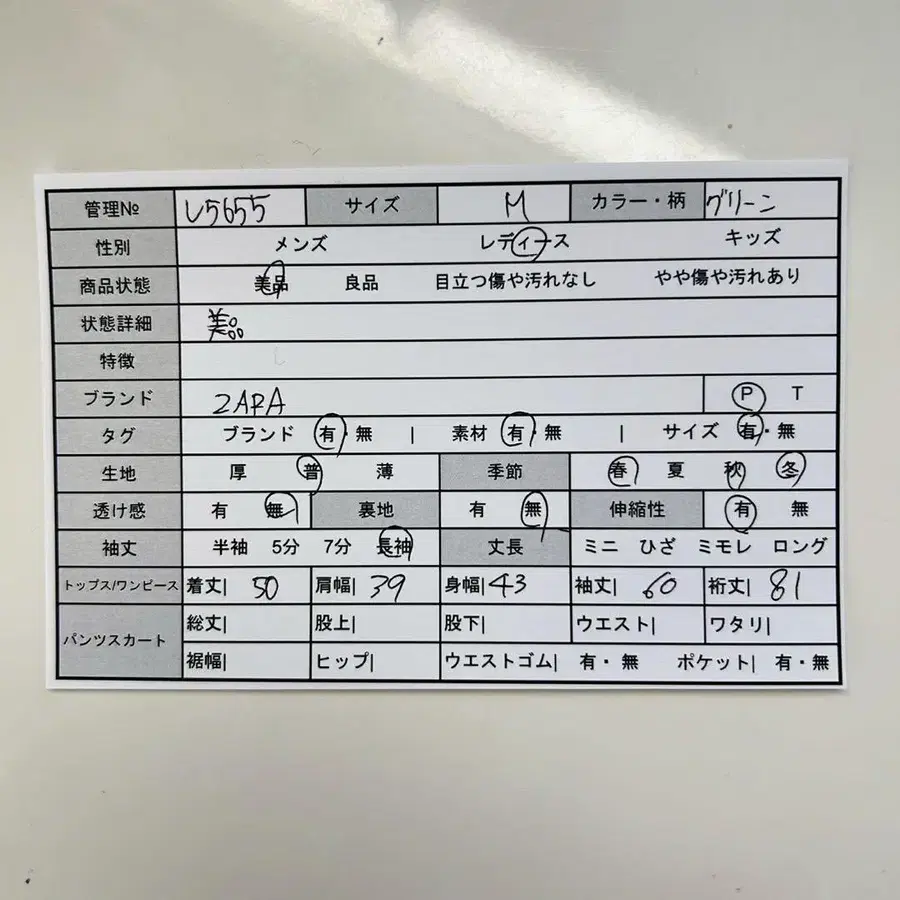 管理№ L5655 サイズ M カラー・柄 グリーン
性別 メンズ レディース キッズ
商品状態 美品 良品 目立つ傷や汚れなし やや傷や汚れあり
状態詳細 美品
特徴
ブランド ZARA P T
タグ ブランド 有・無 | 素材 有・無 | サイズ 有・無
生地 厚 普 薄 季節 春 夏 秋 冬
透け感 有 無 裏地 有 無 伸縮性 有 無
袖丈 半袖 5分 7分 長袖 丈長 ミニ ひざ ミモレ ロング
トップス/ワンピース 着丈| 50 肩幅| 39 身幅| 43 袖丈| 60 裄丈| 81
パンツスカート 総丈| 股上| 股下| ウエスト| ワタリ|
裾幅| ヒップ| ウエストゴム| 有・無 ポケット| 有・無